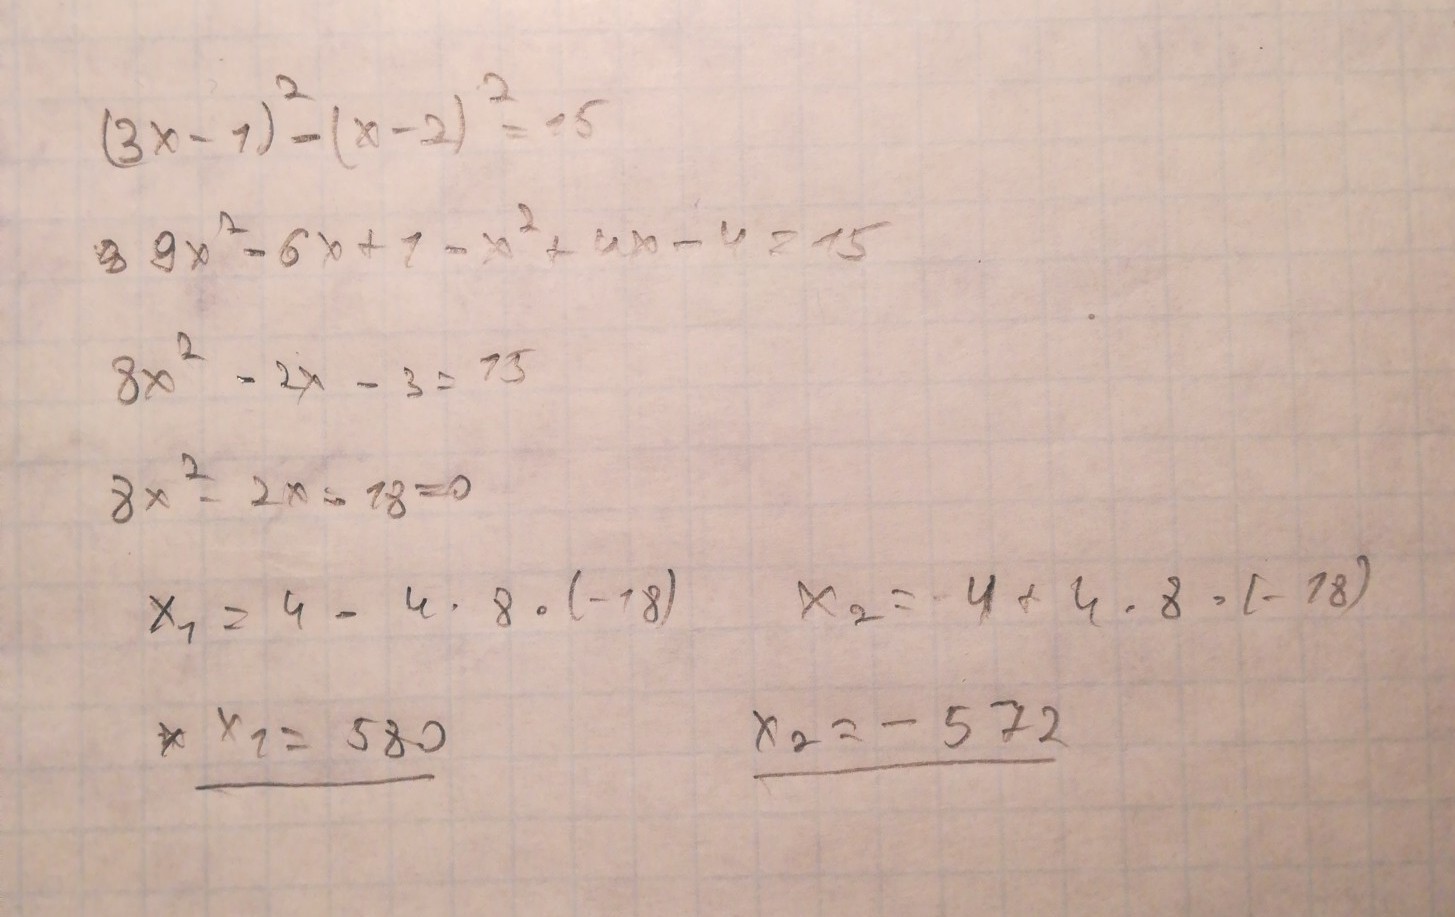 (3x-1)² - (x-2)² = 15
9x² - 6x + 1 - x² + 4x - 4 = 15
8x² - 2x - 3 = 15
8x² - 2x - 18 = 0
x₁ = 4 - 4 · 8 · (-18) x₂ = -4 + 4 · 8 · (-18)
x₁ = 580 x₂ = - 572